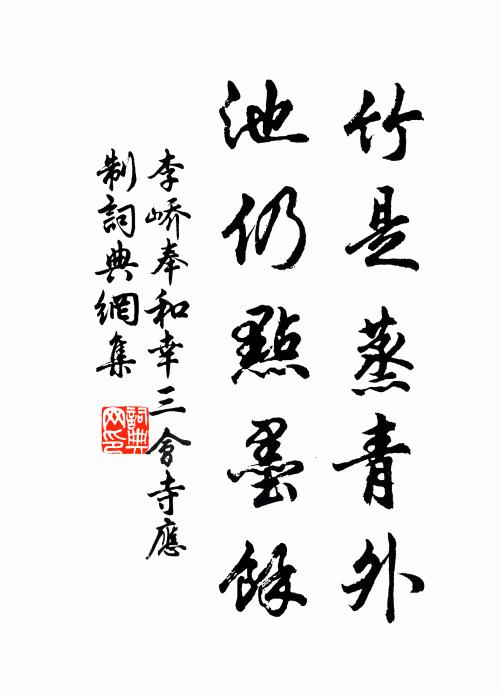 竹是蒸青外
池仍點墨餘
李嶠奉和幸三會寺應
制詞典網集
詞典网印